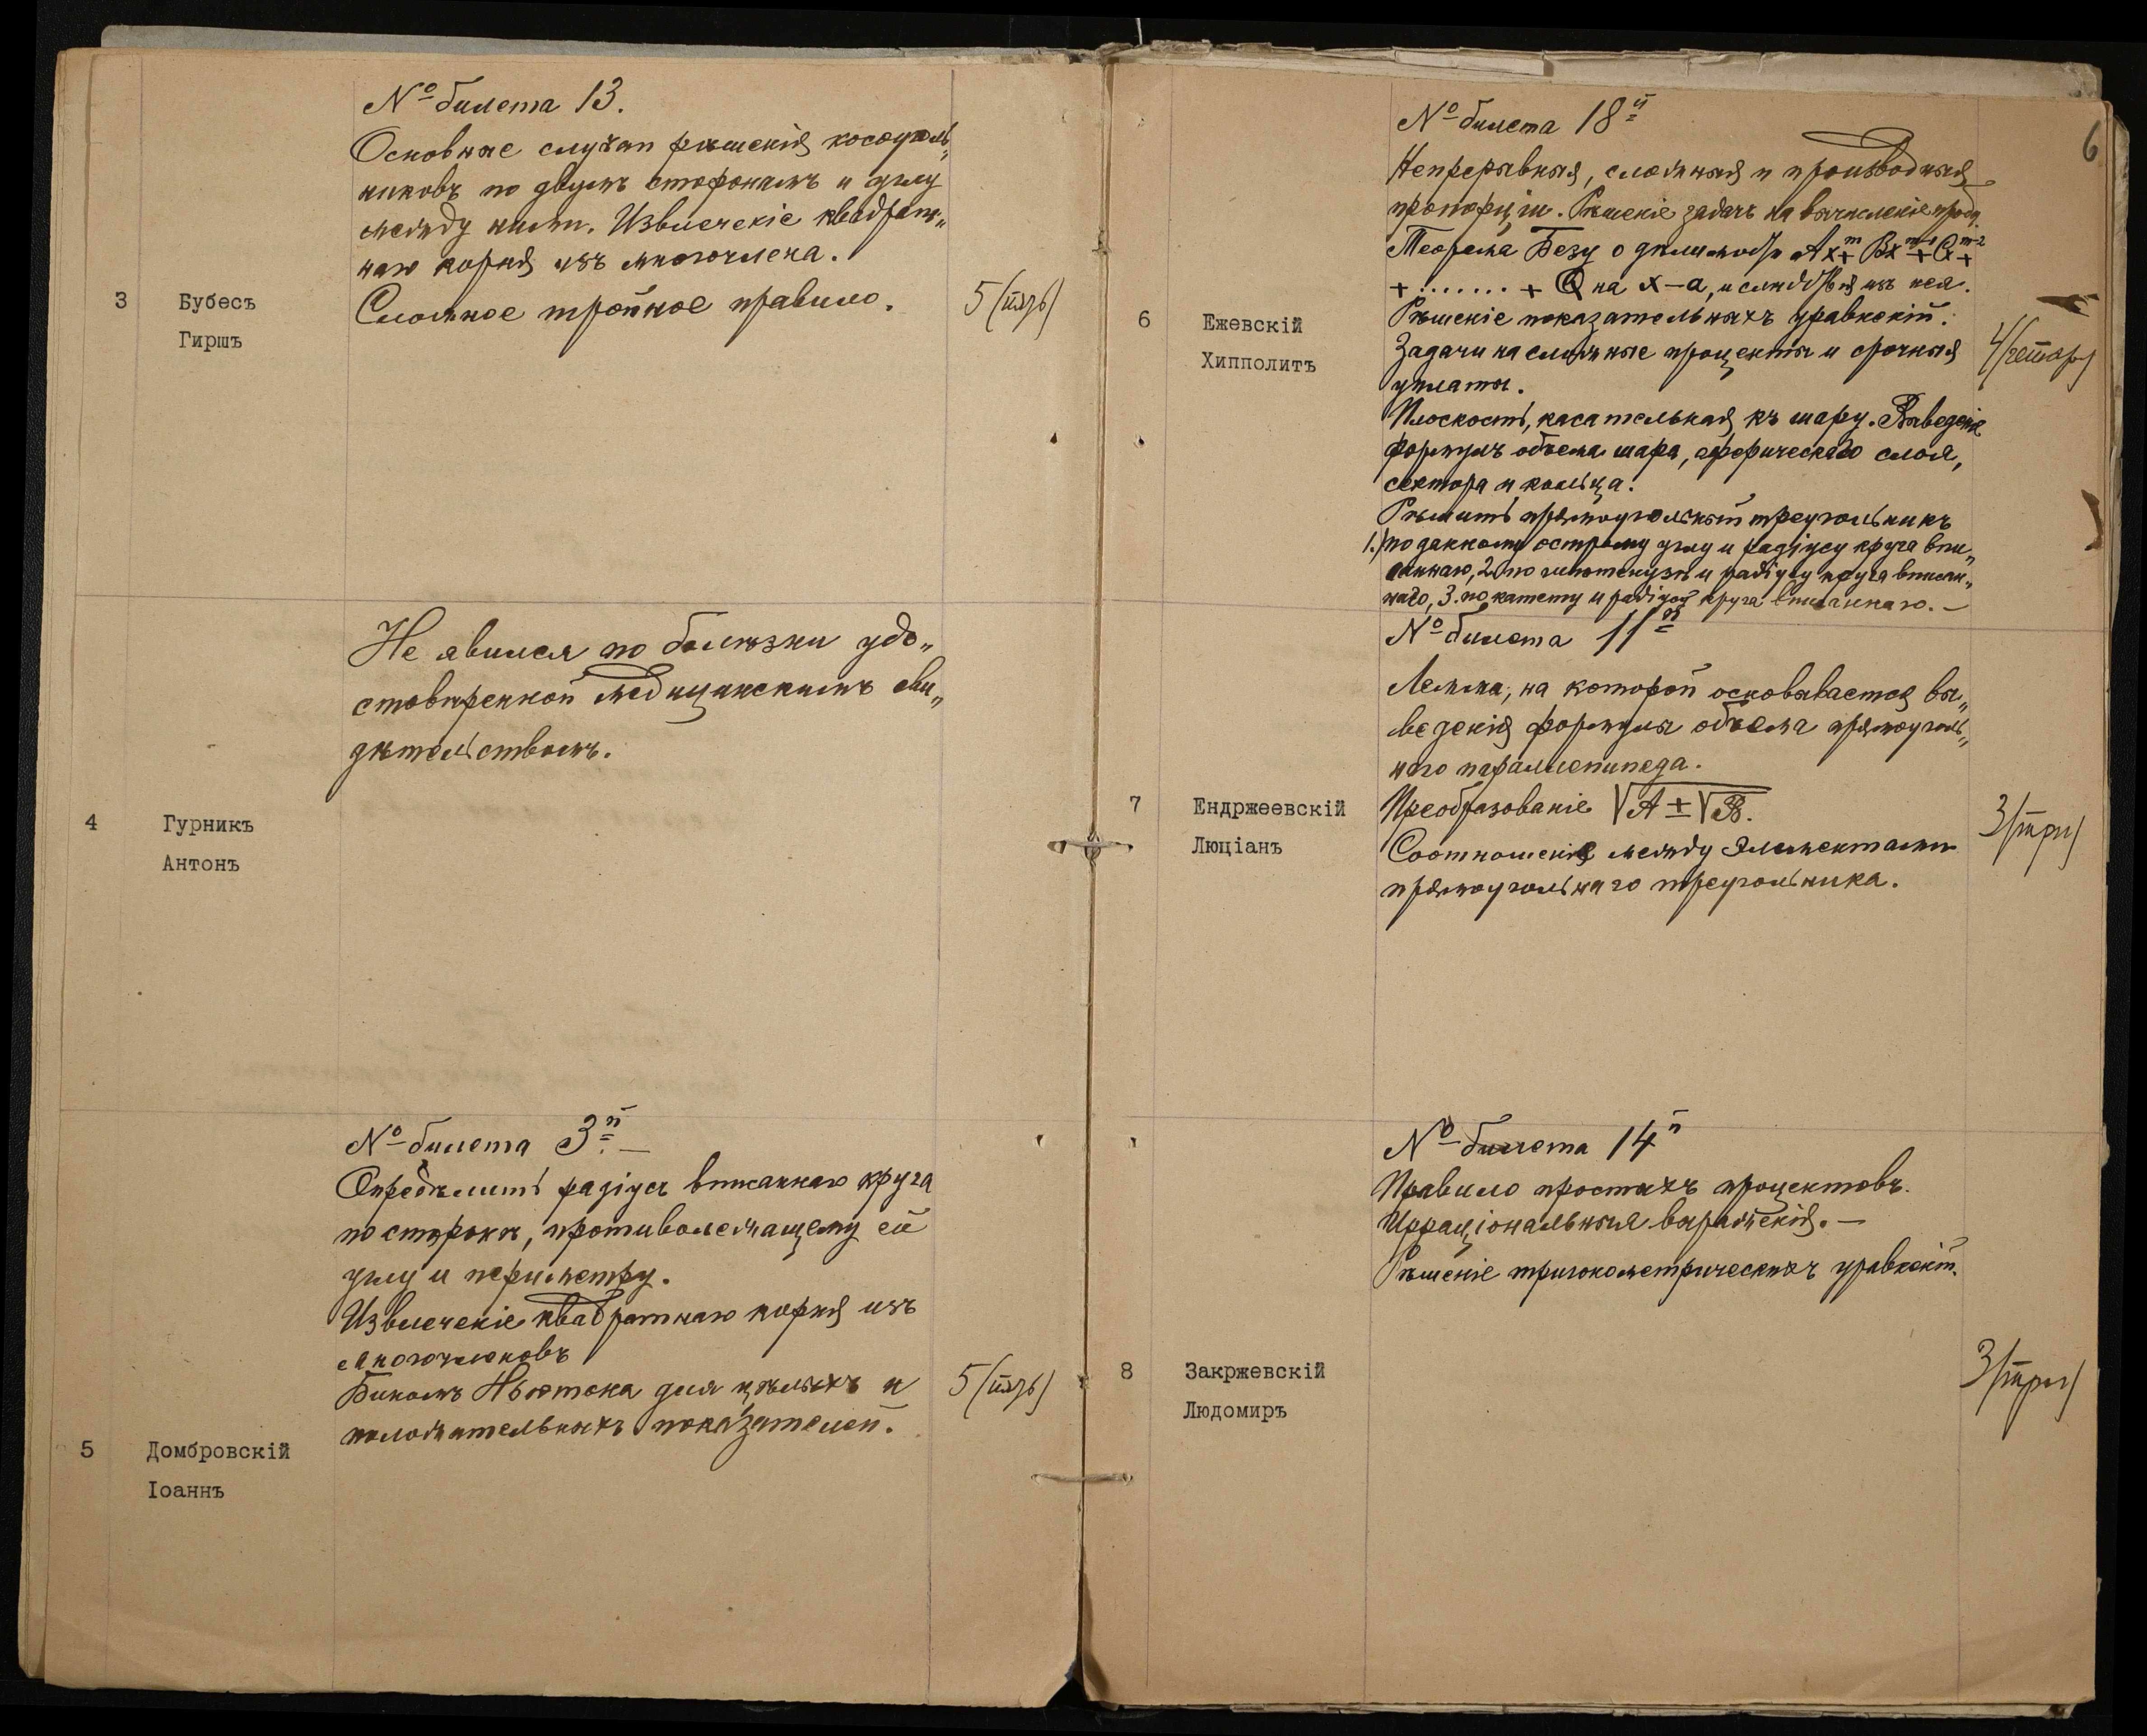 № билета 13.
Основные случаи рѣшенія косоуголь„
никовъ по двумъ сторонамъ и углу
между ними. Извлеченіе квадрат„
наго корня изъ многочлена.
Сложное тройное правило.
3
Бубесъ
Гиршъ
5 (пять)
Не явился по болѣзни удо„
стовѣренной медицинскимъ сви„
дѣтельствомъ.
4
Гурникъ
Антонъ
№ билета 3й. —
Опредѣлить радіусъ вписаннаго круга
по сторонѣ, противолежащему ей
углу и периметру.
Извлеченіе квадратнаго корня изъ
многочленовъ
Биномъ Ньютона для цѣлыхъ и
положительныхъ показателей.
5
Домбровскій
Іоаннъ
5 (пять)
6
№ билета 18й
Непрерывныя, сложныя и производныя
пропорціи. Рѣшеніе задачъ на вычисленіе
Теорема Безу о дѣлимости Ax^m + Bx^m-1 + C^m-2 +
+ ....... + Q на x—a, и слѣдствія изъ нея.
Рѣшеніе показательныхъ уравненій.
Задачи на сложные проценты и срочныя
уплаты.
Плоскость, касательная къ шару. Выведеніе
формулъ объема шара, сферическаго слоя,
сектора и кольца.
Рѣшить прямоугольный треугольникъ
1.) по данному острому углу и радіусу круга впи„
саннаго, 2. по гипотенузѣ и радіусу круга вписан„
наго, 3. по катету и радіусу круга вписаннаго. —
6
Ежевскій
Хипполитъ
4 (четыре)
№ билета 11й
Лемма, на которой основывается вы„
веденія формулы объема прямоуголь„
наго параллепипеда.
Преобразованіе √A ± √B.
Соотношенія между элементами
прямоугольнаго треугольника.
7
Ендржеевскій
Люціанъ
3 (три)
№ билета 14й
Правило простыхъ процентовъ.
Ирраціональныя выраженія. —
Рѣшеніе тригонометрическихъ уравненій.
8
Закржевскій
Людомиръ
3 (три)